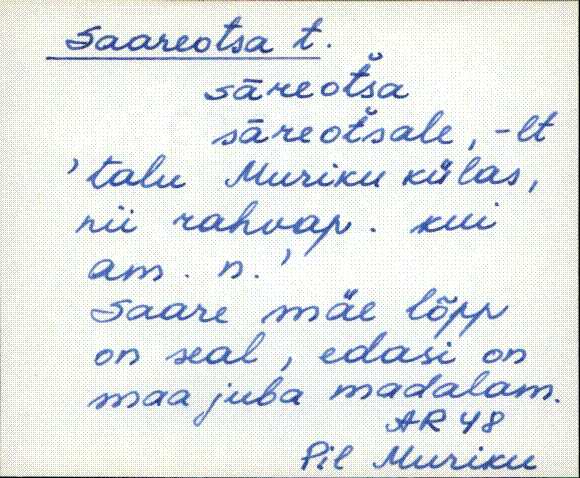 Saareotsa t.
sāreotša
sāreotšale, -lt
'talu Muriku külas,
nii rahvap. kui
am. n.'
Saare mäe lõpp
on seal, edasi on
maa juba madalam.
AR 48
Pil Muriku